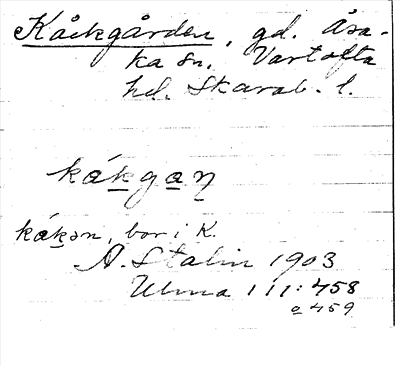 Kåckgården, gd. Åsa-
ka sn. Vartofta
hd. Skarab. l.
kákgaŋ
kákən, bor i K.
A. Stalin 1903
Ulma 111:458
o 459